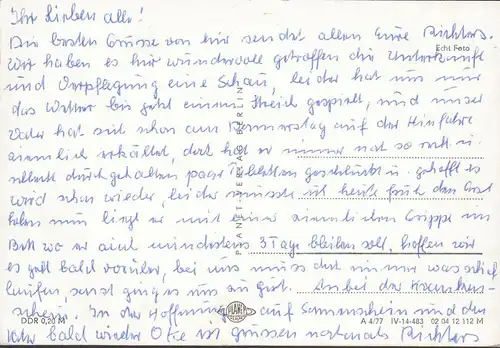 Ihr Lieben alle!
Die besten Grüsse von hir sendet allen Eure Richters
Echt Foto
Wir haben es hir wundervoll getroffen die Unterkunft
und Verpflegung eine Schau, leider hat uns nur
das Wetter bis jetzt einen Streich gespielt, und unser
Vater hat sich schon am Donnerstag auf der Hinfahrt
ziemlich erkältet, dort hat er immer noch so
durchgehalten paar Tabletten geschluckt u. gehofft es
wird schon wieder, leider musste ich heute früh den Arzt
holen nun liegt er mit einer ziemlichen Grippe im
Bett wo er auch mindestens 3 Tage bleiben soll, hoffen wir
es geht bald vorüber, bei uns muss doch immer was schief
laufen sonst ging es uns zu gut. Anbei der
schein. In der Hoffnung auf Sonnenschein und das
Vater bald wieder Oke ist grüssen nochmals Richters
PLANET-VERLAG BERLIN
PLANET
DDR 0,20 M
A 4/77 IV-14-483 02 04 12 112 M